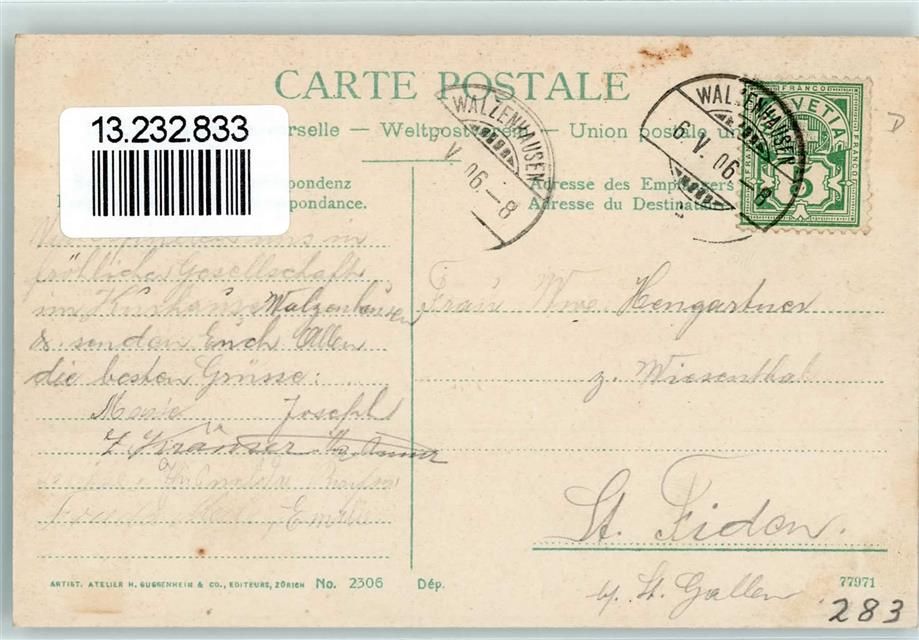 CARTE POSTALE
13.232.833
erselle — Weltpostverein — Union postale un
pondenz
spondance.
Adresse des Empfängers
Adresse du Destinata
WALZENHAUSEN
V. 06.–8
WALZENHAUSEN
6. V. 06.–8
FRANCO
HELVETIA
FRANCO
5
D
uns in
fröhlicher Gesellschaft
im Kurhause Walzenhausen
& senden Euch Allen
die besten Grüsse:
Marie Joseph
Frau Wwe Hengartner
z. Wiesenthal
St. Fiden.
b/ St. Gallen
Emilie
ARTIST. ATELIER H. GUGGENHEIM & CO., EDITEURS, ZÜRICH No. 2306 Dép.
77971
283